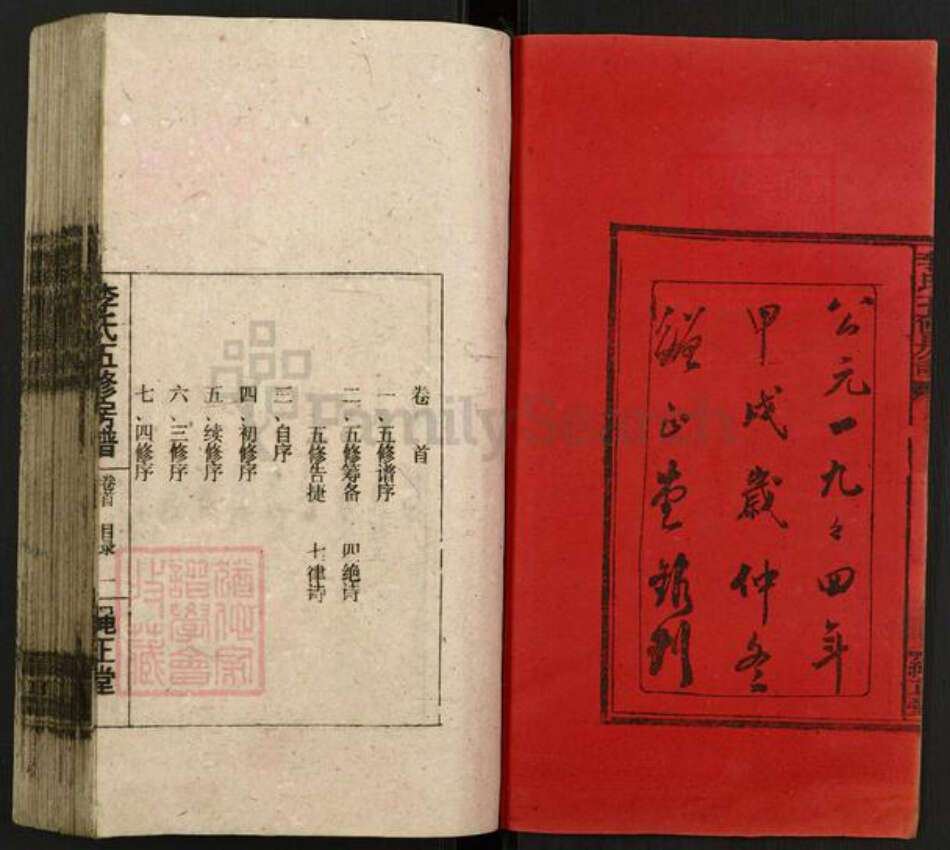 公元一九々四年
甲戌歲仲冬
繩正堂鐫刊
卷首
一、五修谱序
二、五修筹备 四绝诗
五修告捷 七律诗
三、自序
四、初修序
五、续修序
六、三修序
七、四修序
李氏五修房谱 卷首 目录 一 绳正堂
FamilySearch